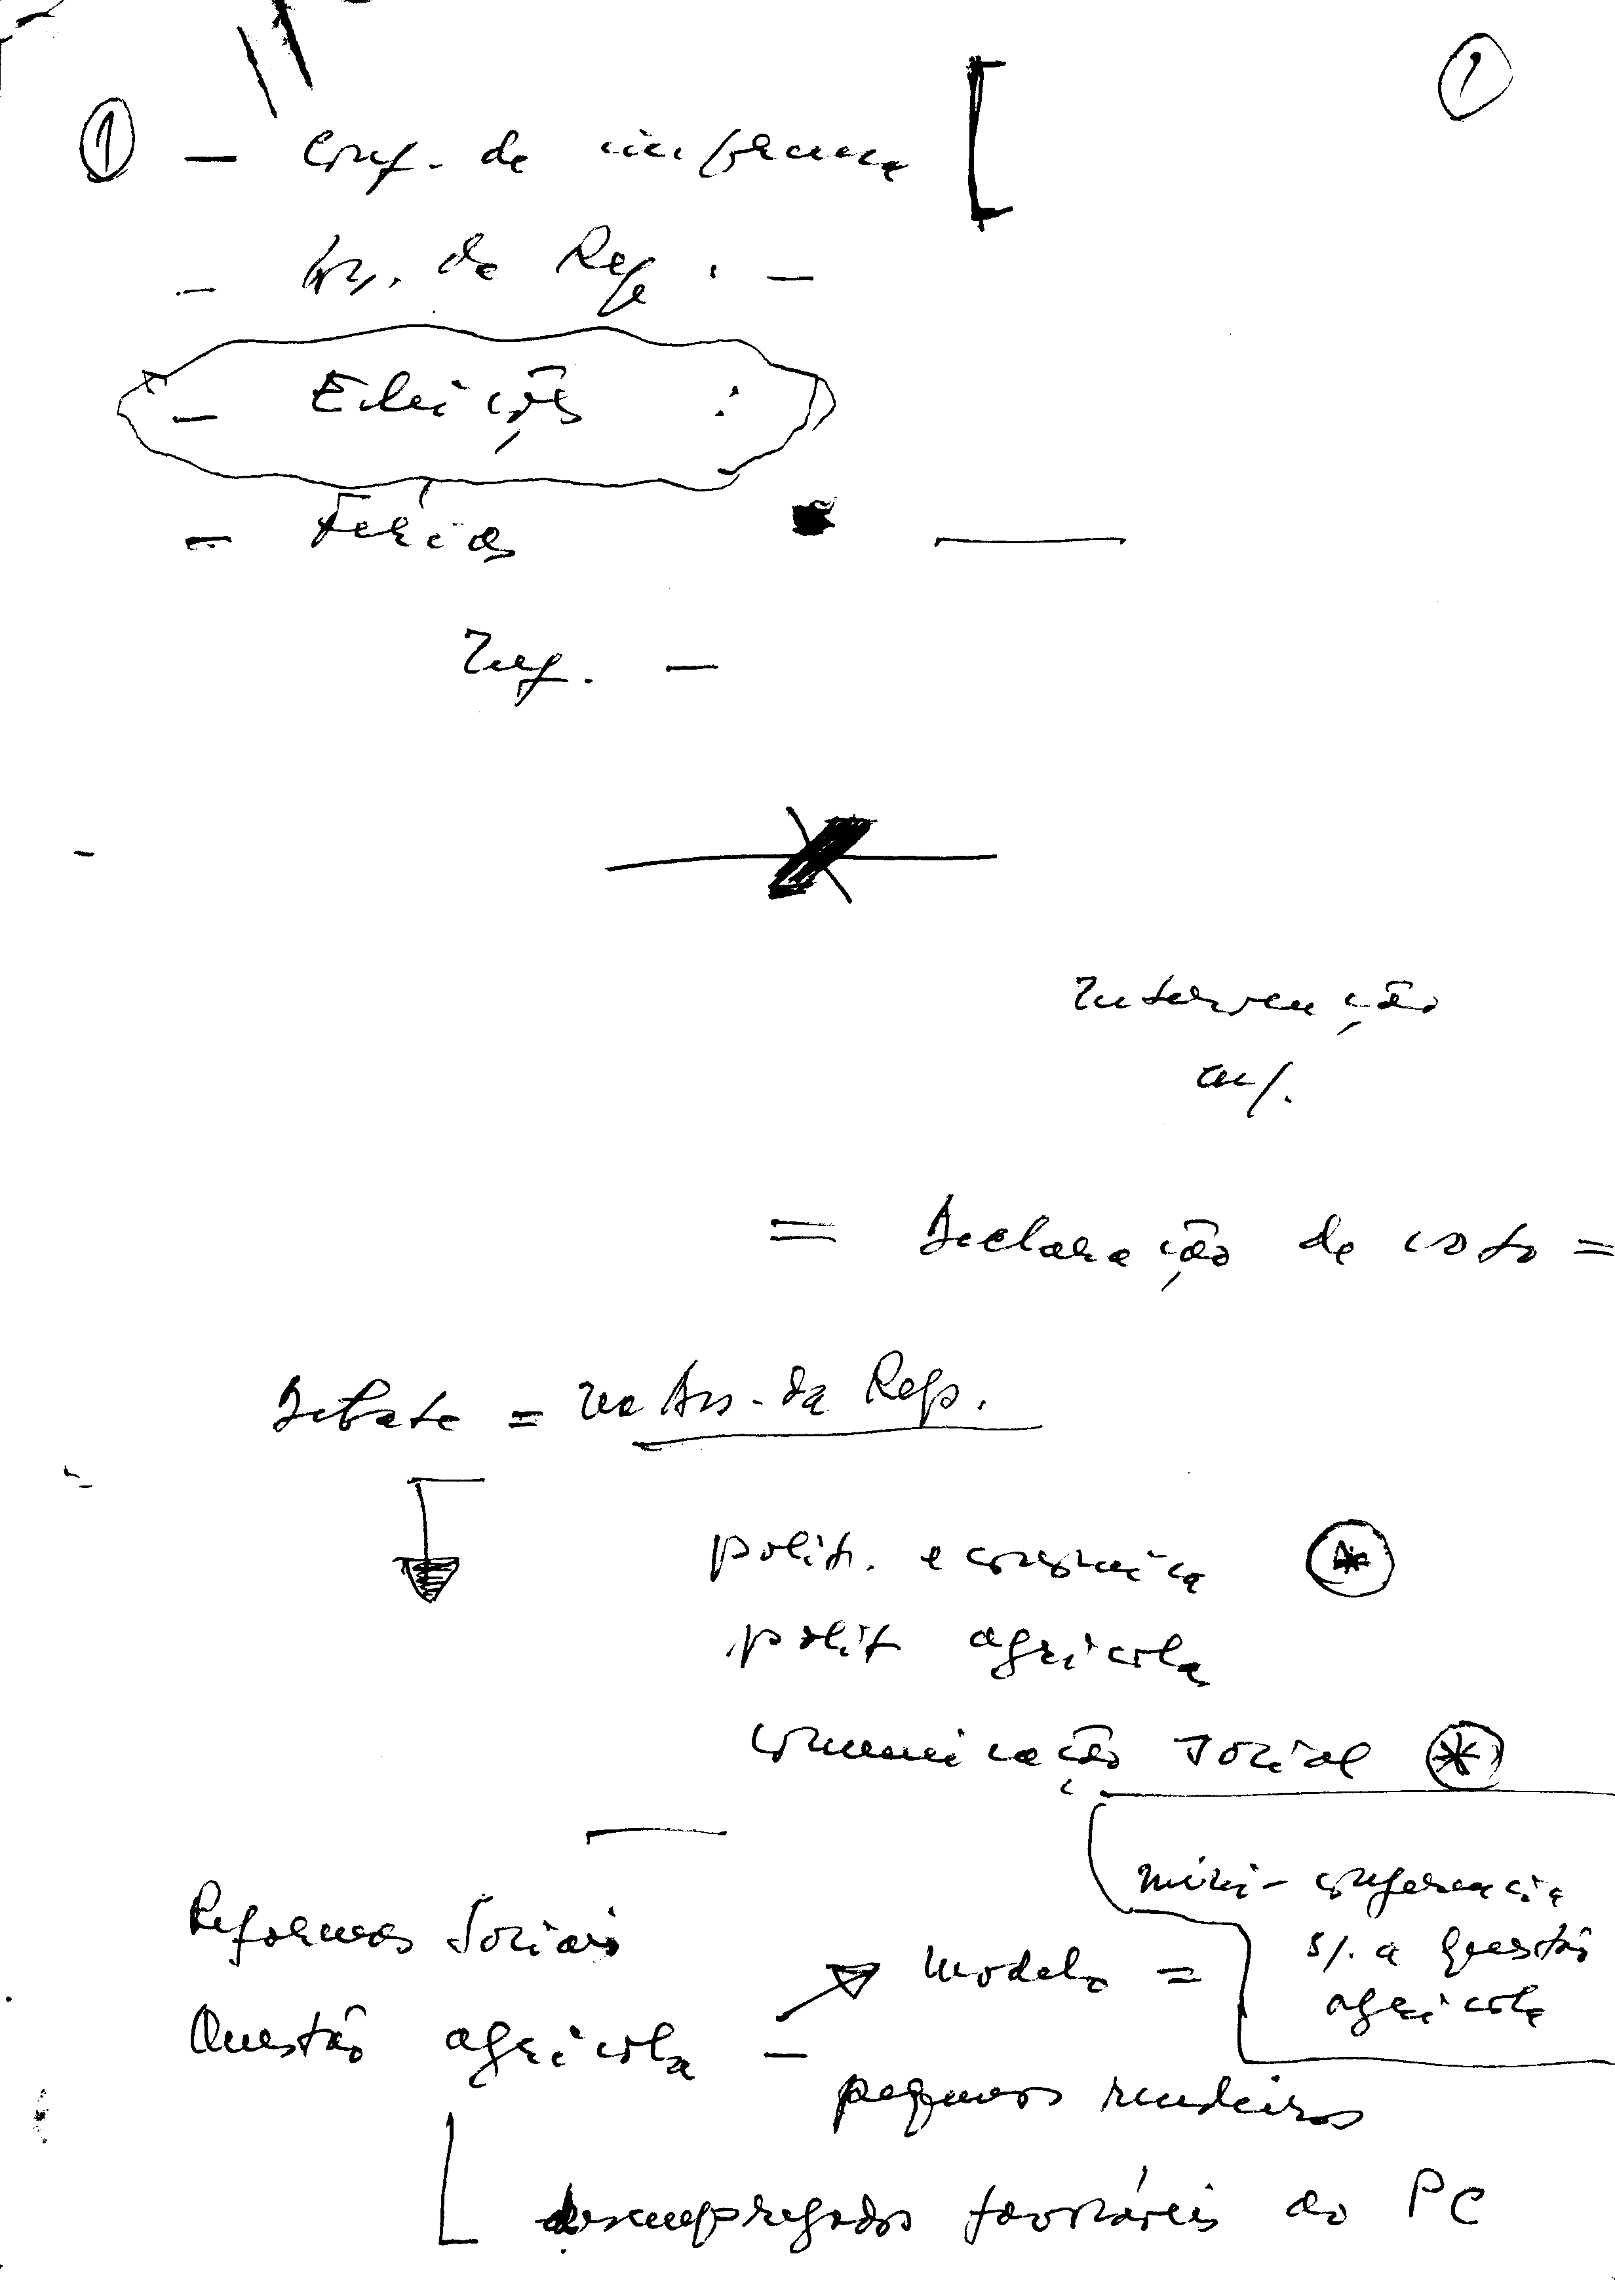 1
① — Conf. de imprensa [
— Ass. da Rep. —
— Eleições :
— Férias
Inf. —
Intervenção
= Declaração de voto =
Debate = na Ass. da Rep.
polit. económica *
polit agrícola
comunicação social *
mini-conferencia
Reformas Sociais
s/. a questão
modelo =
agrícola
Questão agrícola —
pequenos rendeiros
desempregados favoráveis ao PC